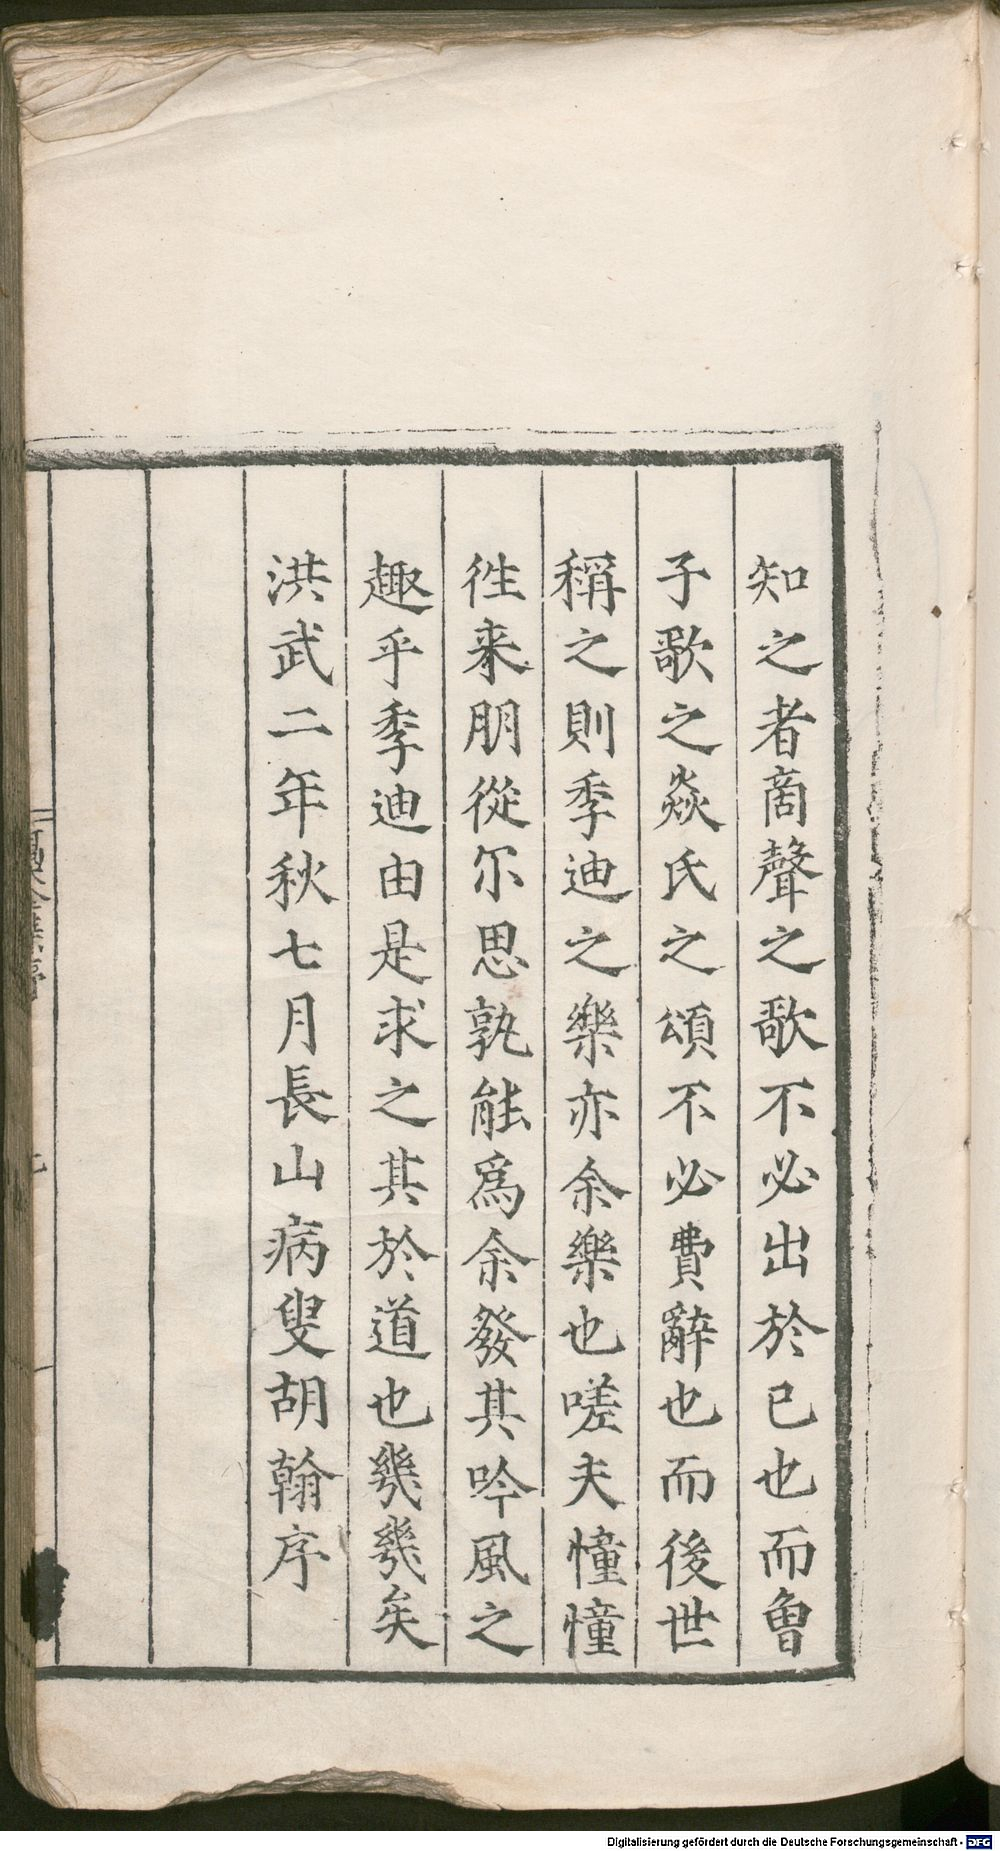 知之者商聲之歌不必出於已也而魯
子歌之焱氏之頌不必費辭也而後世
稱之則季迪之樂亦余樂也嗟夫憧憧
徃来朋從尔思孰能爲余發其吟風之
趣乎季迪由是求之其於道也幾幾矣
洪武二年秋七月長山病叟胡翰序
Digitalisierung gefördert durch die Deutsche Forschungsgemeinschaft - DFG